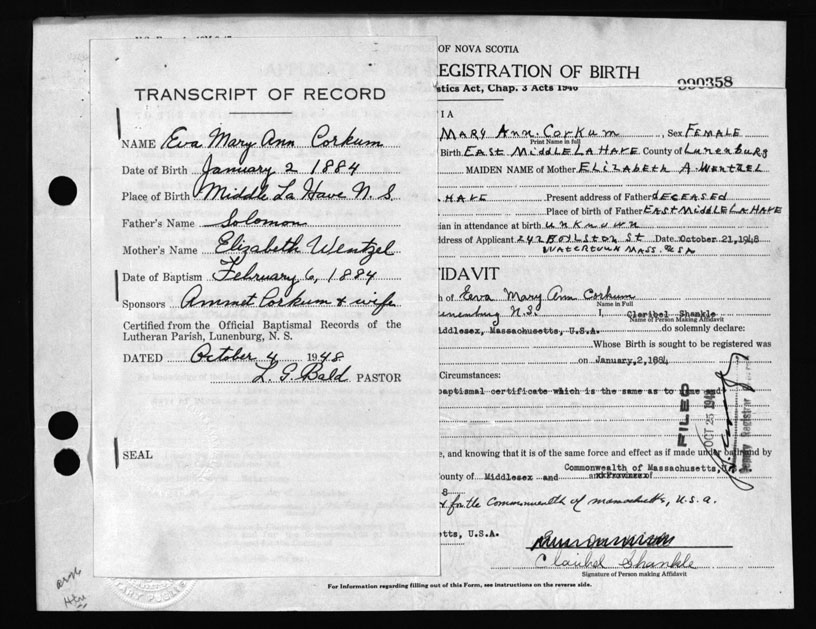 TRANSCRIPT OF RECORD
NAME Eva Mary Ann Corkum
Date of Birth January 2 1884
Place of Birth Middle La Have N. S.
Father's Name Solomon
Mother's Name Elizabeth Wentzel
Date of Baptism February 6, 1884
Sponsors Ammet Corkum & wife
Certified from the Official Baptismal Records of the
Lutheran Parish, Lunenburg, N. S.
DATED October 4 1948
L. G. Bald PASTOR
SEAL
OF NOVA SCOTIA
REGISTRATION OF BIRTH
990358
stics Act, Chap. 3 Acts 1946
IA
MARY Ann. Corkum, Sex FEMALE
Print Name in full
Birth EAST MIDDLE LA HAVE County of Lunenburg
MAIDEN NAME of Mother ELIZABETH A. WENTZEL
HAVE Present address of Father DECEASED
Place of birth of Father EAST MIDDLE LA HAVE
ian in attendance at birth unknown
ddress of Applicant 242 BOYLSTON ST Date October 21, 1948
WATERTOWN MASS. USA
FIDAVIT
h of Eva Mary Ann Corkum
Name in Full
unenburg N.S. I, Claribel Shankle
Name of Person Making Affidavit
iddlesex, Massachusetts, U.S.A. do solemnly declare:
Whose Birth is sought to be registered was
on January, 2, 1884
Circumstances:
baptismal certificate which is the same as to name and
FILED
OCT 25 1948
Deputy Registrar
e, and knowing that it is of the same force and effect as if made under oath and by
Commonwealth of Massachusetts,
ounty of Middlesex and
8
& for the Commonwealth of Massachusetts, U.S.A.
etts, U.S.A.
Claribel Shankle
Signature of Person making Affidavit
For Information regarding filling out of this Form, see instructions on the reverse side.